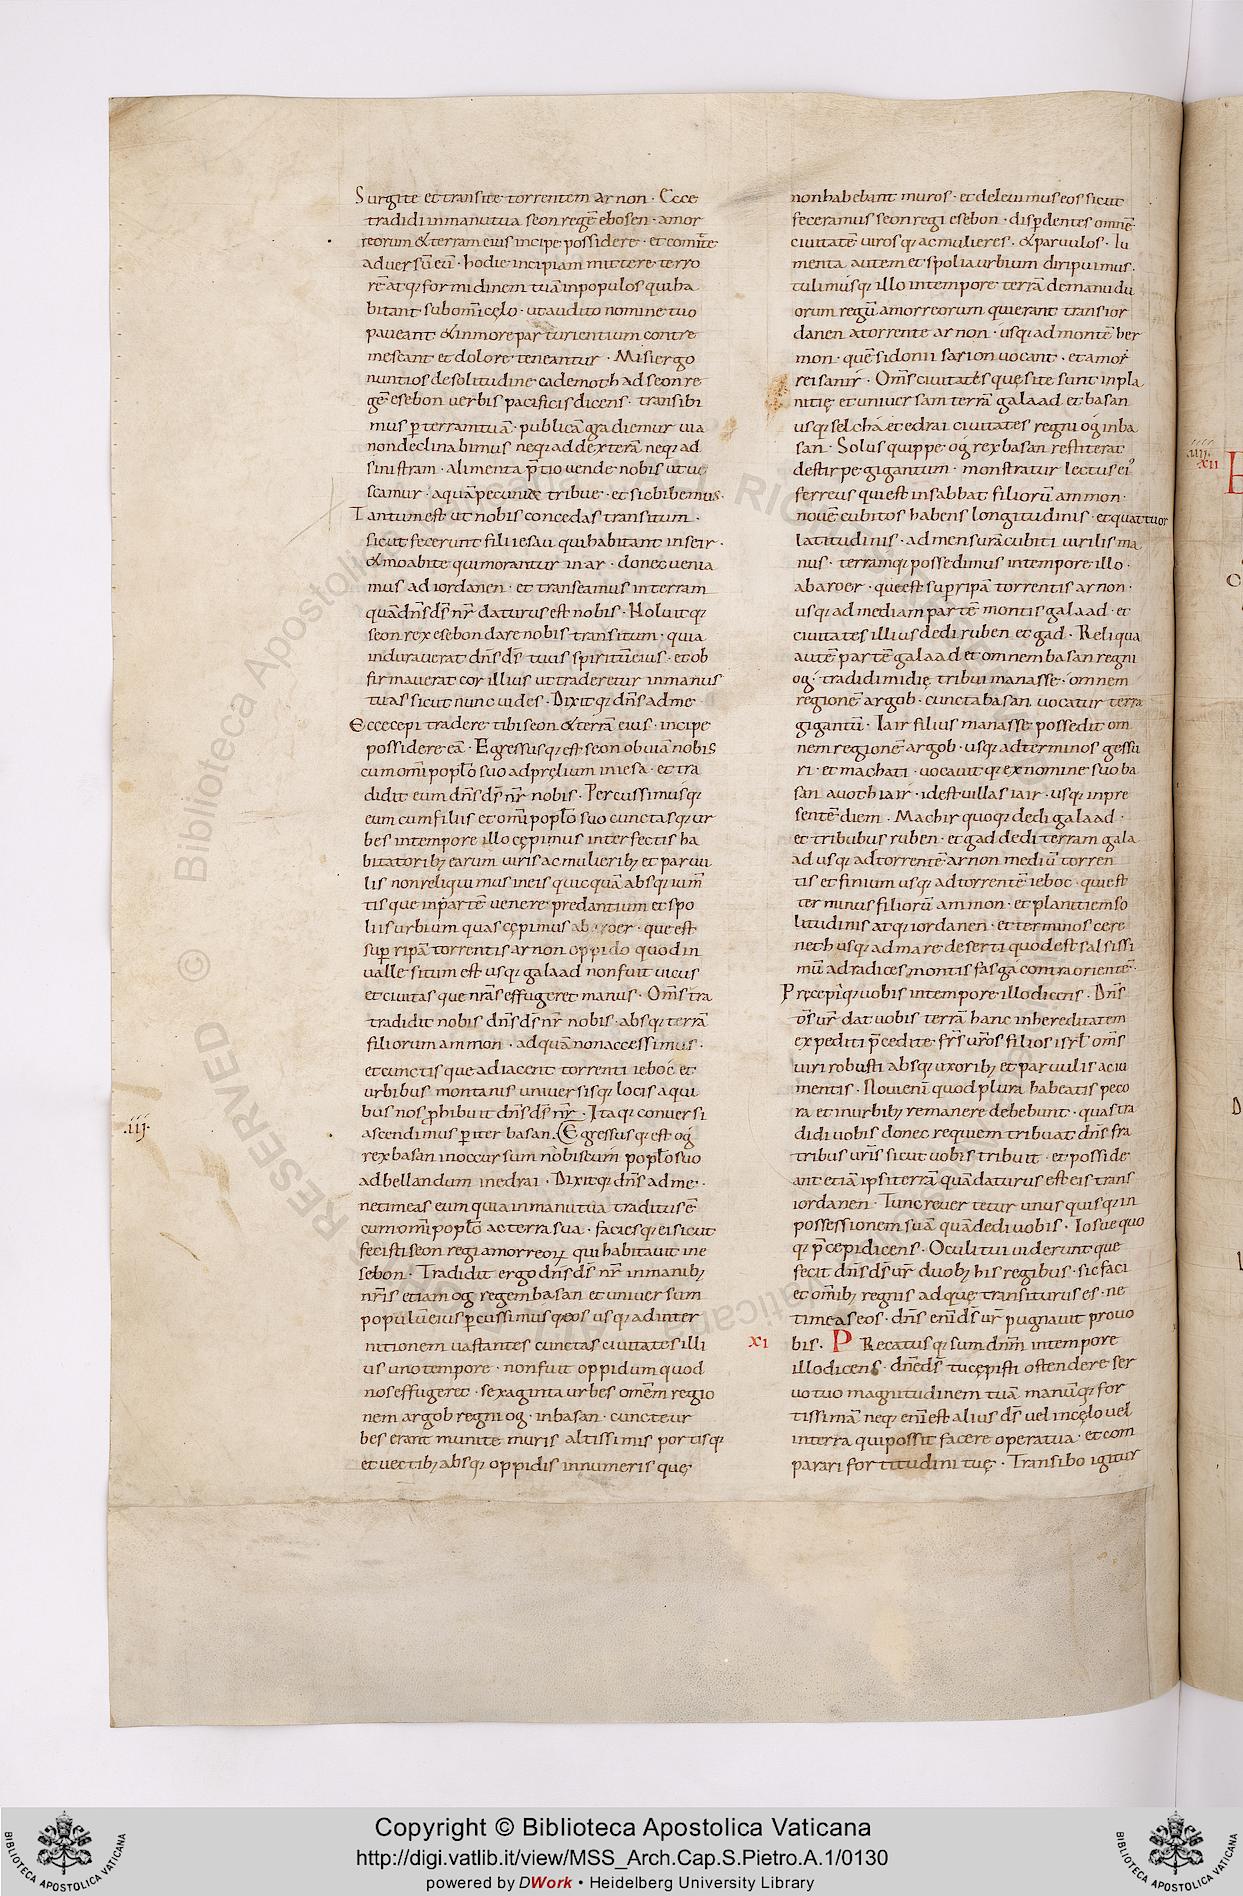 Surgite et transite torrentem arnon · Ecce
tradidi inmanutua seon regē ebosen · amor
reorum &terram eius incipe possidere · et comitte
adversū eū · hodie incipiam mittere terro
rē atq; formidinem tuā inpopulos quiha
bitant subomī cęlo · utaudito nomine tuo
paveant &inmore parturientium contre
mescant et dolore teneantur · Misi ergo
nuntios desolitudine cademoth ad seon re
gē esebon verbis pacificis dicens · transibi
mus p̄ terram tuā · publicā gradiemur via
nondeclinabimus neq; addexterā neq; ad
sinistram · alimenta p̄tio vende nobis ut ve
scamur · aquā pecunia tribue · et sic bibemus ·
Tantumest ut nobis concedas transitum ·
sicut fecerunt filii esau qui habitant inseir ·
&moabite quimorantur in ar · donec venia
mus ad iordanen · et transeamus interram
quā dn̄s ds̄ nr̄ daturus est nobis · Noluitq;
seon rex esebon dare nobis transitum · quia
induraverat dn̄s ds̄ tuus spiritū eius · et ob
firmaverat cor illius ut traderetur inmanus
tuas sicut nunc vides · Dixitq; dn̄s adme ·
Ecce cepi tradere tibi seon &terrā eius · incipe
possidere eā · Egressusq; est seon obviā nobis
cum omī poplo suo adprelium iniesa · et tra
didit eum dn̄s ds̄ nr̄ nobis · Percussimusq;
eum cum filiis et omī poplo suo cunctasq; ur
bes intempore illo cępimus interfectis ha
bitatorib; earum viris ac mulierib; et parvu
lis non reliquimus ineis quicquā absq; ium̄
tis que inpartē venere predantium et spo
liis urbium quas cępimus abaroer · que est
sup ripā torrentis arnon oppido quod in
valle situm est usq; galaad non fuit vicus
et civitas que nrās effugeret manus · Om̄s tra
tradidit nobis dn̄s ds̄ nr̄ nobis · absq; terrā
filiorum ammon · ad quā non accessimus ·
et cunctis que adiacent torrenti ieboc et
urbibus montanis universisq; locis a qui
bus nos p̄hibuit dn̄s ds̄ nr̄ · Itaq; conversi
.iij.
ascendimus p̄ iter basan · Egressusq; est og
rex basan inoccursum nobiscum poplo suo
adbellandum inedrai · Dixitq; dn̄s adme ·
netimeas eum quia inmanu tua traditus ē
cum omī poplo ac terra sua · faciesq; ei sicut
fecisti seon regi amorreoꝝ qui habitavit ine
sebon · Tradidit ergo dn̄s ds̄ nr̄ inmanib;
nr̄is etiam og regem basan et universum
populū eius p̄cussimusq; eos usq; adinter
nitionem vastantes cunctas civitates illi
us uno tempore · non fuit oppidum quod
nos effugeret · sexaginta urbes omēm regio
nem argob regni og · inbasan · cuncte ur
bes erant munite muris altissimis portisq;
et vectib; absq; oppidis innumeris quę
nonhabebant muros · et delevimus eos sicut
feceramus seon regi esebon · disp̄dentes omnē
civitatē virosq; ac mulieres · &parvulos · Iu
menta autem et spolia urbium diripuimus ·
tulimusq; illo intempore terrā demanu du
orum regū amorreorum qui erant transior
danen a torrente arnon · usq; ad montē her
mon · quē sidonii sarion vocant · et amor
rei sanir · Om̄s civitates quę site sunt inpla
nitię et universam terrā galaad et basan
usq; selcha et edrai civitates regni og inba
san · Solus quippe og rex basan restiterat
destirpe gigantum · monstratur lectus ei᾽
ferreus qui est insabbat filiorū ammon ·
novē cubitos habens longitudinis · et quattuor
latitudinis · ad mensurā cubiti virilis ma
nus · terramq; possedimus intempore illo ·
abaroer · que est sup ripā torrentis arnon ·
usq; ad mediam partē montis galaad · et
civitates illius dedi ruben et gad · Reliqua
autē partē galaad et omnem basan regni
og · tradidi midię tribui manasse · omnem
regionē argob · cuncta basan vocatur terra
gigantū · Iair filius manasse possedit om
nem regionē argob · usq; ad terminos gessu
ri · et machati · vocavitq; ex nomine suo ba
san avoth iair · id est villas iair · usq; inpre
sentē diem · Machir quoq; dedi galaad ·
et tribubus ruben · et gad dedi terram gala
ad usq; ad torrentē arnon mediū torren
tis et finium usq; ad torrentē ieboc · qui est
terminus filiorū ammon · et planitiem so
litudinis atq; iordanen · et terminos cere
neth usq; ad mare deserti quod est salsissi
mū ad radices montis fasga contra orientē ·
Pręcepiq; vobis intempore illo dicens · Dn̄s
ds̄ vr̄ dat vobis terrā hanc inhereditatem
expediti p̄cedite fr̄s vr̄os filios isrl̄ om̄s
viri robusti absq; uxorib; et parvulis ac iu
mentis · Novi enī quod plura habeatis peco
ra et inurbib; remanere debebunt · quas tra
didi vobis donec requiem tribuat dn̄s fra
tribus vr̄is sicut vobis tribuit · et posside
ant etiā ipsi terrā quā daturus est eis trans
iordanen · Tunc revertetur unus quisq; in
possessionem suā quā dedi vobis · Iosue quo
q; p̄cepi dicens · Oculi tui viderunt que
fecit dn̄s ds̄ vr̄ duob; his regibus · sic faci
et omīb; regnis ad quę transiturus es · ne
timeas eos · dn̄s enī ds̄ vr̄ pugnavit pro vo
xi bis · PRecatusq; sum dnm̄ intempore
illo dicens · dnē ds̄ tu cępisti ostendere ser
vo tuo magnitudinem tuā manūq; for
tissimā neq; enī est alius ds̄ vel incęlo vel
interra qui possit facere opera tua · et com
parari fortitudini tuę · Transibo igitur
.iiij.
xii
Copyright © Biblioteca Apostolica Vaticana
http://digi.vatlib.it/view/MSS_Arch.Cap.S.Pietro.A.1/0130
powered by DWork • Heidelberg University Library